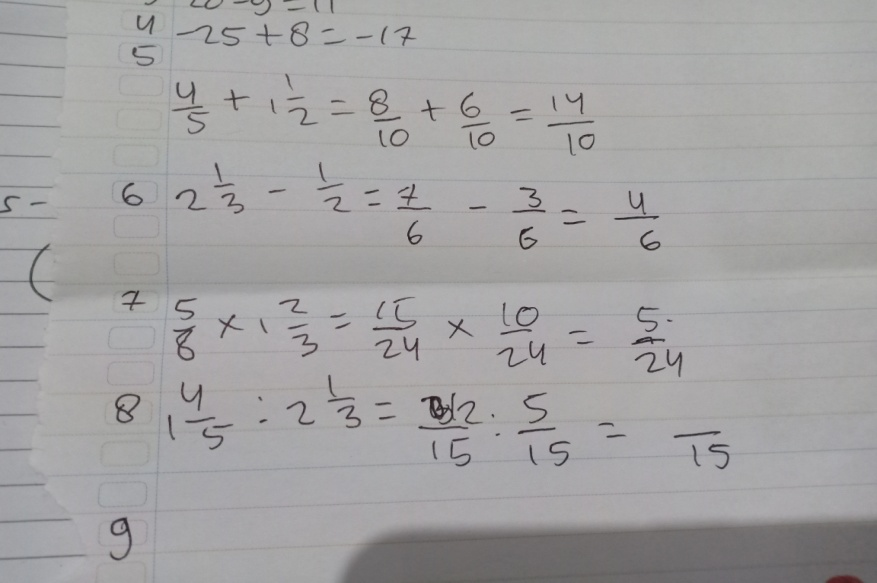 20 - 9 = 11
4 -25 + 8 = -17
5
4/5 + 1 1/2 = 8/10 + 6/10 = 14/10
5-
6 2 1/3 - 1/2 = 7/6 - 3/6 = 4/6
(
7 5/8 × 1 2/3 = 15/24 × 10/24 = 5/24
8 1 4/5 : 2 1/3 = 12/15 : 5/15 = /15
9